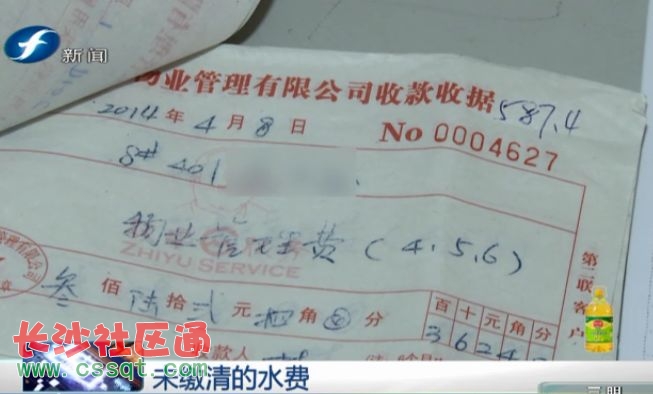 新闻
物业管理有限公司收款收据
587.4
2014年4月8日
No 0004627
8# 401
物业管理费(4.5.6)
ZHIYU SERVICE
叁佰陆拾贰元
角
分
百十元角分
3624
第二联
客户
长沙社区通
www.cssqt.com
未缴清的水费
三明